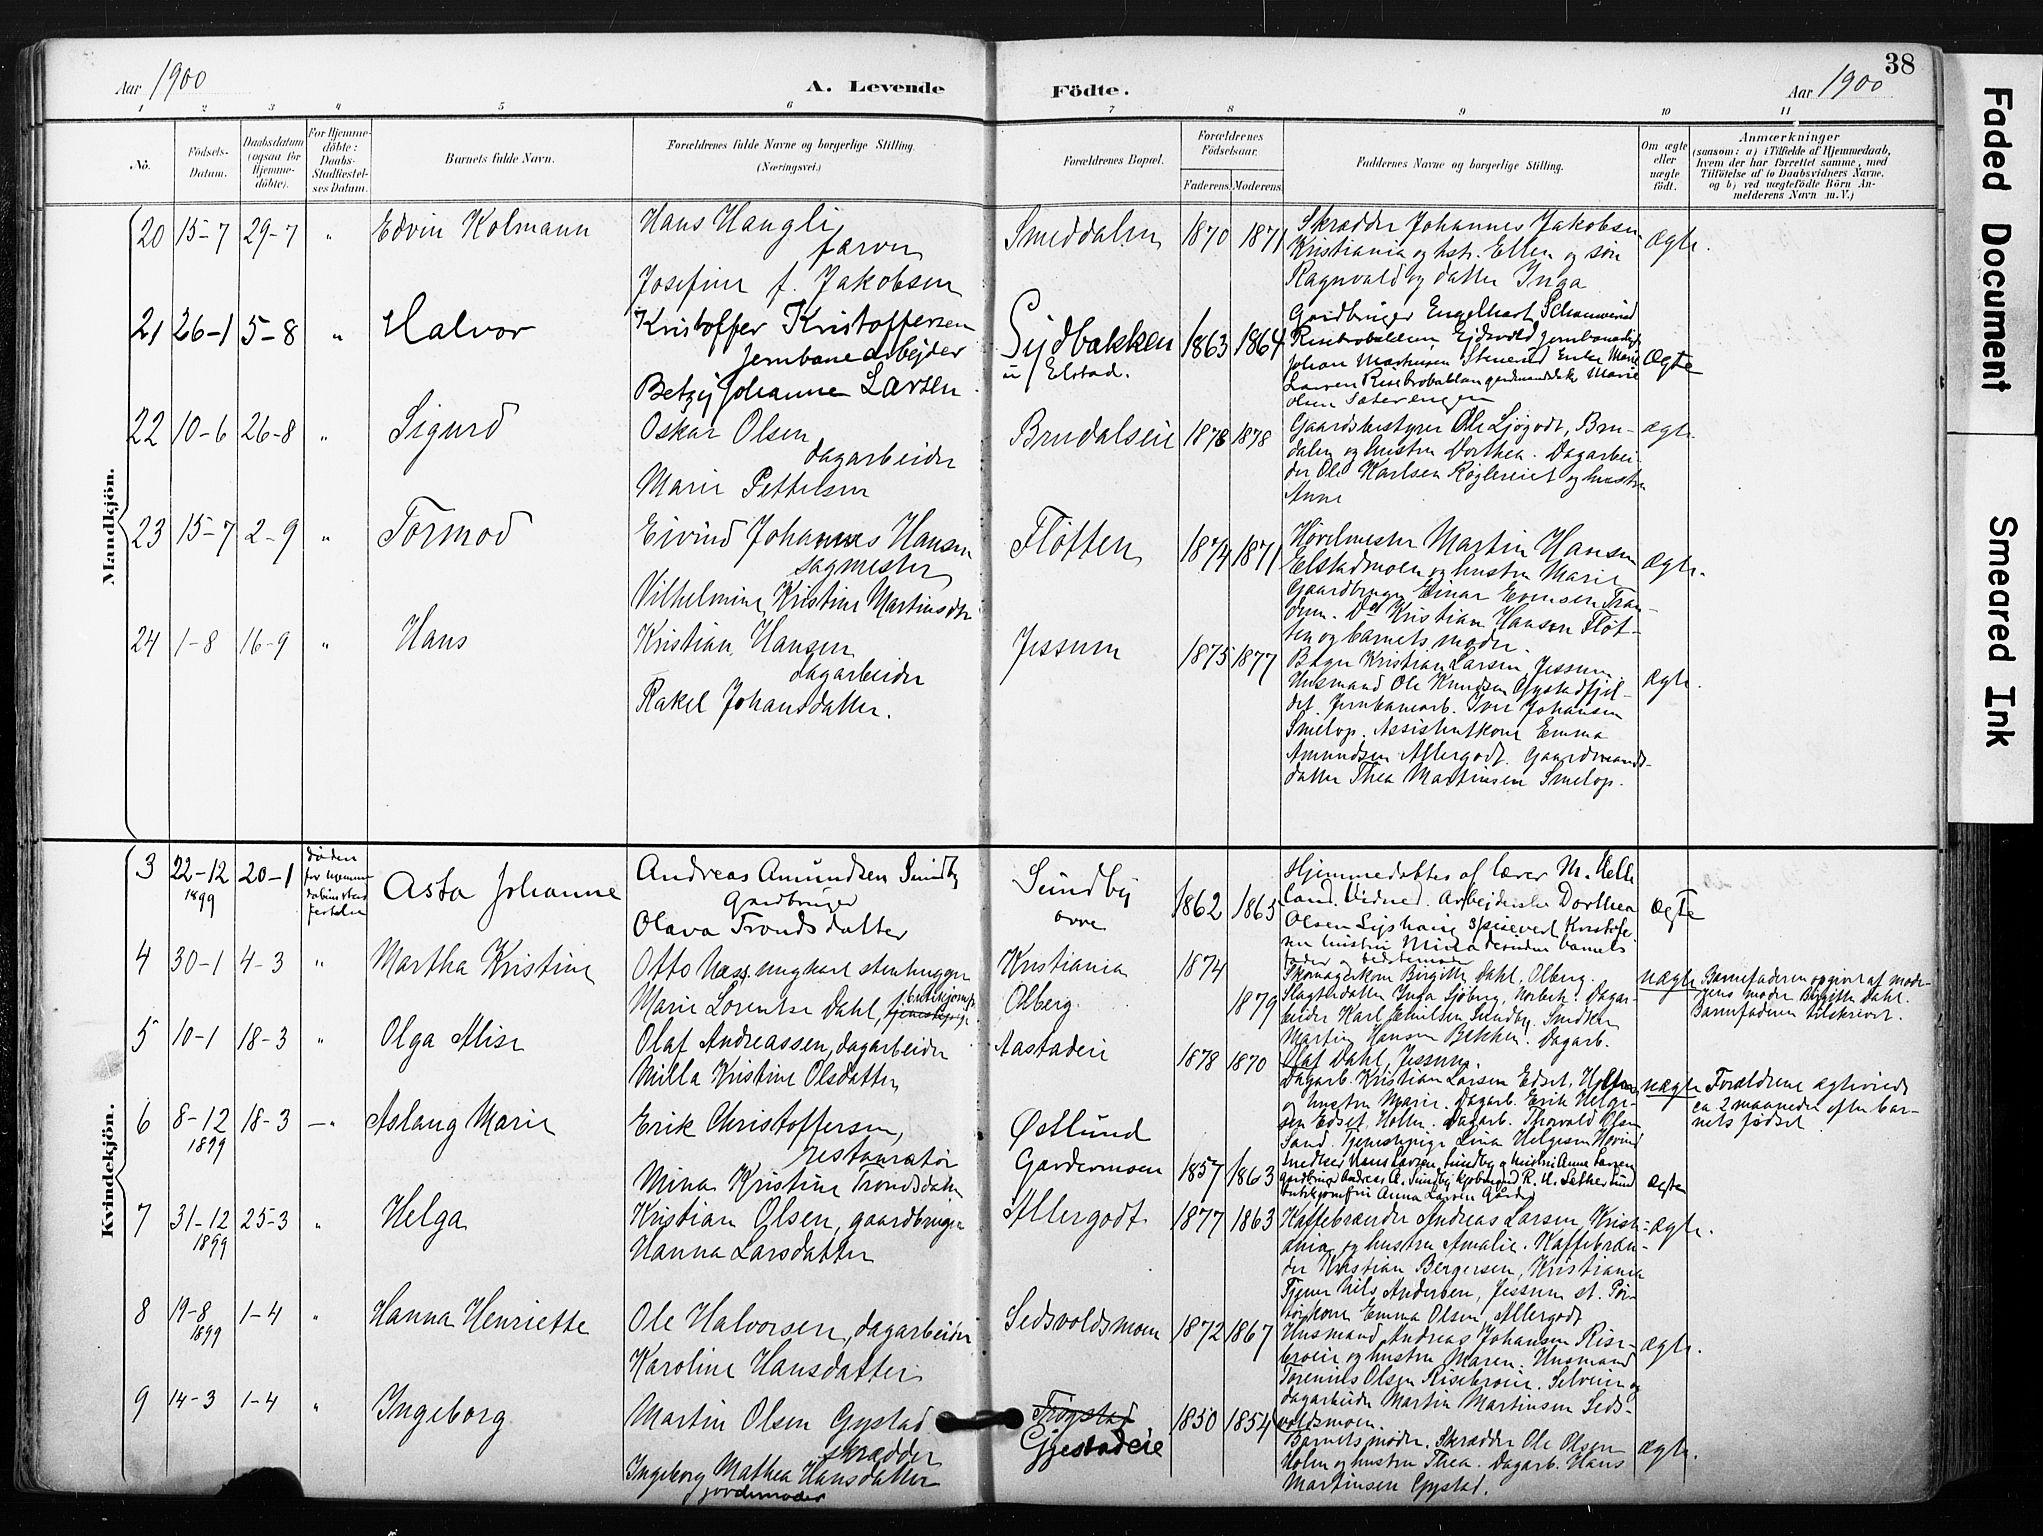 Aar 1900
A. Levende
Födte.
Aar 1900
38
1 2 3 4 5 6 7 8 9 10 11
No.
Födsels-Datum.
Daabsdatum (ogsaa for Hjemme-döbte).
For Hjemme-döbte: Daabs-Stadfæstel-ses Datum.
Barnets fulde Navn.
Forældrenes fulde Navne og borgerlige Stilling. (Næringsvei.)
Forældrenes Bopæl.
Forældrenes Födselsaar.
Faderens. Moderens.
Faddernes Navne og borgerlige Stilling.
Om ægte eller uægte födt.
Anmærkninger
(saasom: a) i Tilfælde af Hjemmedaab,
hvem der har forrettet samme, med
Tilföielse af to Daabsvidners Navne,
og b) ved uægtefödte Börn An-
melderens Navn m. V.)
Mandkjön.
20 15-7 29-7 " Edvin Kolmann
Hans Haugli
farver
Josefine f. Jakobsen
Smeddalen 1870 1871
Skrædder Johannes Jakobsen
Kristiania og hst. Ellen og søn
Ragnvald og datter Inga
ægte.
21 26-1 5-8 " Halvor
Kristoffer Kristoffersen
Jernbanearbejder
Betzy Johanne Larsen
Sydbakken
u/ Elstad.
1863 1864
Gardbruger Engelhart
Ejdsvold
Johan
Larsen Marie
Olsen Sæterengen
Ægte
22 10-6 26-8 " Sigurd
Oskar Olsen
dagarbeider
Marie Pettersen
Brudalseie 1878 1878
Gaardsbestyrer Ole Ljøgodt, Bru-
dalen og hustru Dorthea. Dagarbei-
der Ole Karlsen Røglereiet og hustru
Anne
ægte.
23 15-7 2-9 " Tormod
Eivind Johannes Hansen
sagmester
Vilhelmine Kristine Martinsdtr
Fløtten 1874 1871
Høvelmester Martin Hansen
Elstadmoen og hustru Marie
Gaardbruger Einar Evensen Tran-
dum. Do Kristian Hansen Fløt-
ten og barnets moder.
ægte.
24 1-8 16-9 " Hans
Kristian Hansen
dagarbeider
Rakel Johansdatter.
Jessum 1875 1877
Bager Kristian Larsen Jessum.
Husmand Ole Knudsen Gystadfjel-
det. Jernbanearb. Iver Johansen
Smelop. Assistentkone Emma
Amundsen Allergodt. Gaardmands-
datter Thea Martinsen Smelop.
ægte.
Kvindekjön.
3 22-12 1899 20-1
Asta Johanne
Andreas Amundsen Sundby
Gardbruger
Olava Tronds datter
Sundby
øvre
1862 1865
Hjemmedøbtes af lærer M. Helle
land. Vidned. Arbejderske Dorthea
Olsen
hustru Mina desuden barnets
fader og bedstemoder
Ægte
4 30-1 4-3 " Martha Kristine
Otto Næss, ungkarl stenhugger
Marie Lorentse Dahl, butikjomfr. tjenestepige
Kristiania
Olberg.
1874
1879
Skomagerkone Birgitte Dahl, Olberg.
Slagterdatter Inga Sjøberg, Norbek. Dagar-
beider Karl Emilsen Sundby. Smedkn.
Martin Hansen Bekken. Dagarb.
Olaf Dahl, Jessum.
uægte
Barnefaderen opgivet af mode-
rens moder Birgitte Dahl.
Barnefaderen tilskrevet.
5 10-1 18-3 " Olga Alise
Olaf Andreassen, dagarbeider
Milla Kristine Olsdatter
Aastadeie
1878 1870
Dagarb. Kristian Larsen Edset, Holter
og hustru Marie. Dagarb. Erik Helge-
sen Edset, Holter. Dagarb. Thorvald Olsen
Sand. Tjenestepige Lina Helgesen Hovind
uægte
Forældrene ægteviede
ca 2 maaneder efter bar-
nets fødsel
6 8-12 1899 18-3 -"- Aslaug Marie
Erik Christoffersen,
restauratør
Mina Kristine Trondsdatter
Østlund
Gardermoen
1857 1863
Smedsvd Hans Larsen, Sundby og hustru Anne Larsen
gardbruger Andreas A. Sundby
butikjomfru Anna Larsen
ægte
7 31-12 1899 25-3 " Helga
Kristian Olsen, gaardbruger
Hanna Larsdatter
Allergodt 1877 1863
Kaffebrænder Andreas Larsen, Kristi-
ania og hustru Amalie. Kaffebræn-
der Kristian Bergersen, Kristiania
Tjener Nils Andersen, Jessum st. Por-
tørkone Emma Olsen, Allergodt
ægte.
8 19-8 1899 1-4 " Hanna Henriette
Ole Halvorsen, dagarbeider
Karoline Hansdatter
Sedsvoldsmoen 1872 1867
Husmand Andreas Johansen Rise-
broeie og hustru Maren. Husmand
Torenius Olsen Risebroeie. Selveier og
dagarbeider Martin Martinsen Seds-
voldsmoen.
ægte.
9 14-3 1-4 " Ingeborg
Martin Olsen Gystad
skrædder
Ingeborg Mathea Hansdatter
jordemoder
Trøgstad
Gjestadeie
1850 1854
Barnets moder. Skrædder Ole Olsen
Holm og hustru Thea. Dagarb. Hans
Martinsen Gystad.
ægte.
Faded Document
Smeared Ink